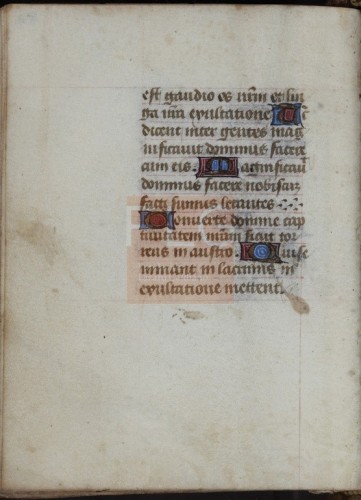 est gaudio os nr̄m et lin
gua nr̄a exultatione T c̄
dicent inter gentes mag
nificauit dominus facere
cum eis. Magnificauit
dominus facere nobiscū
facti sumus letantes
Conuerte domine cap
tiuitatem nr̄am sicut tor
rens in austro. Qui se
minant in lacrimis in
exultatione metent.